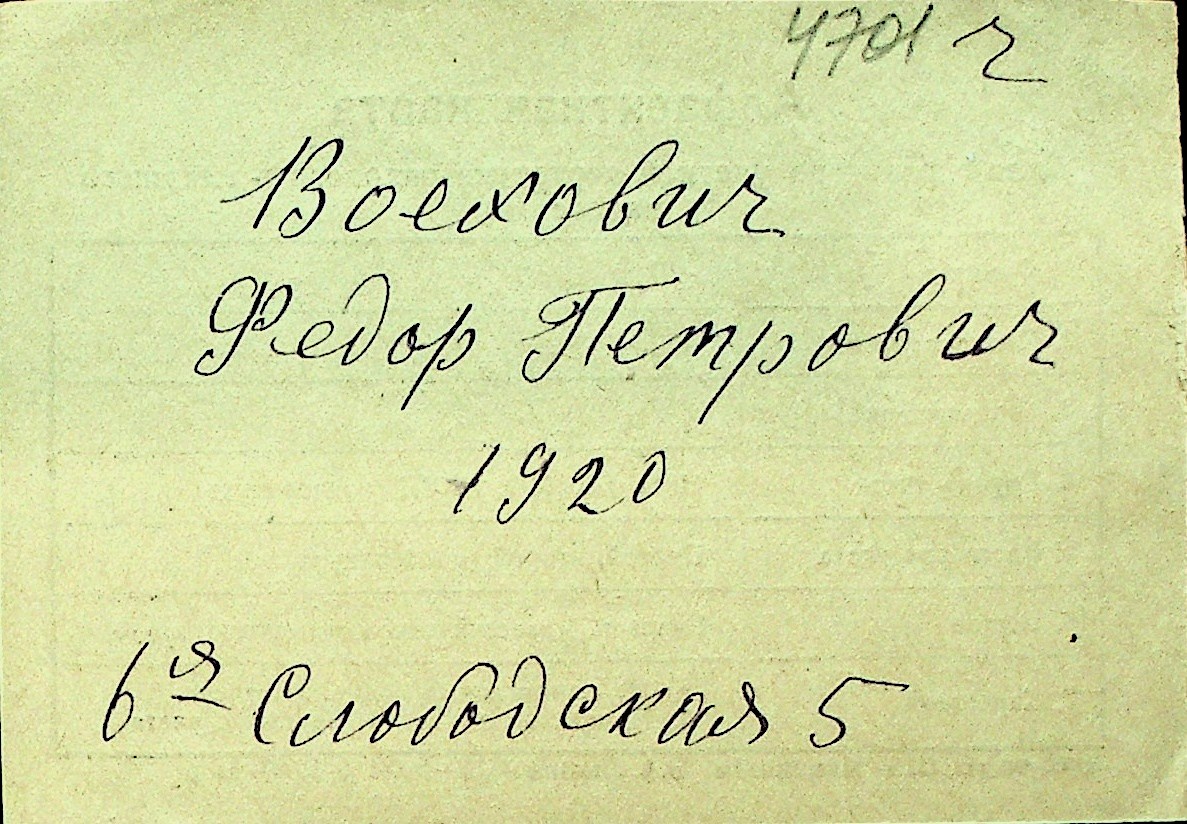 4701 ч
Воехович
Федор Петрович
1920
6я Слободская 5